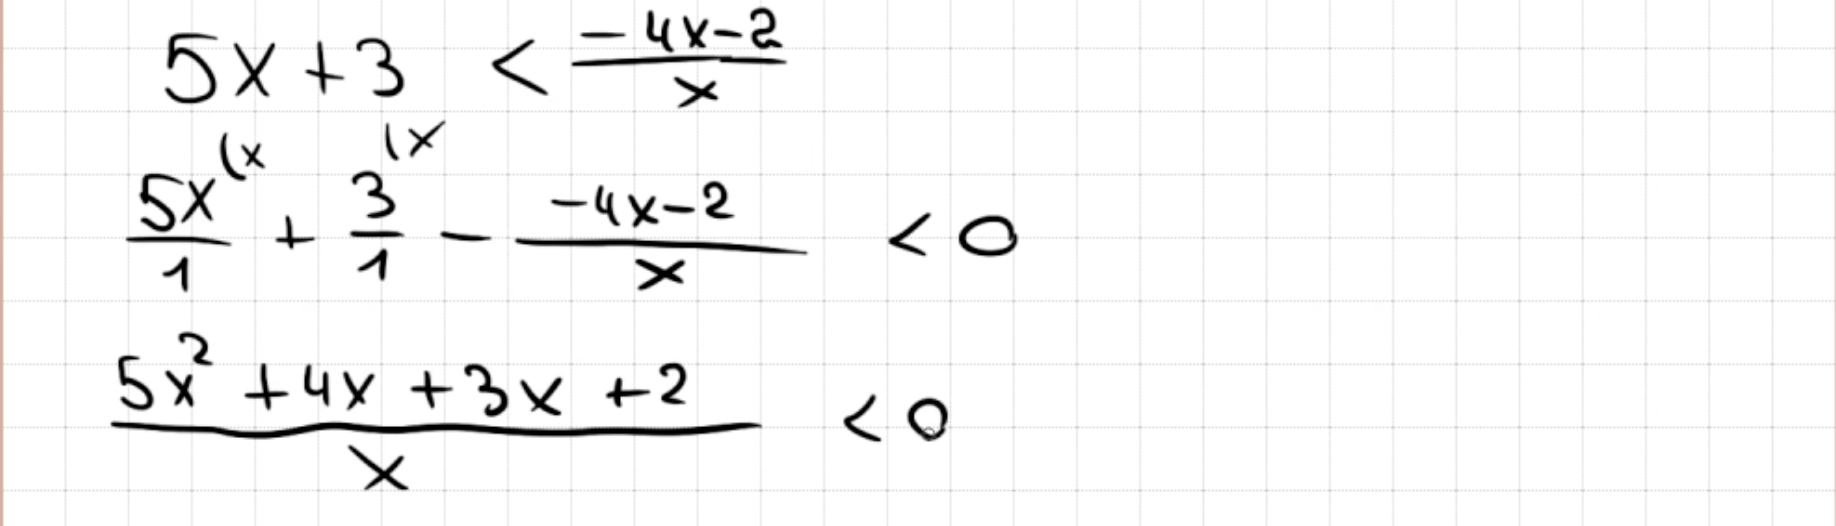 5x + 3 < (-4x-2)/x
5x/1 (x + 3/1 (x - (-4x-2)/x < 0
(5x² + 4x + 3x + 2)/x < 0